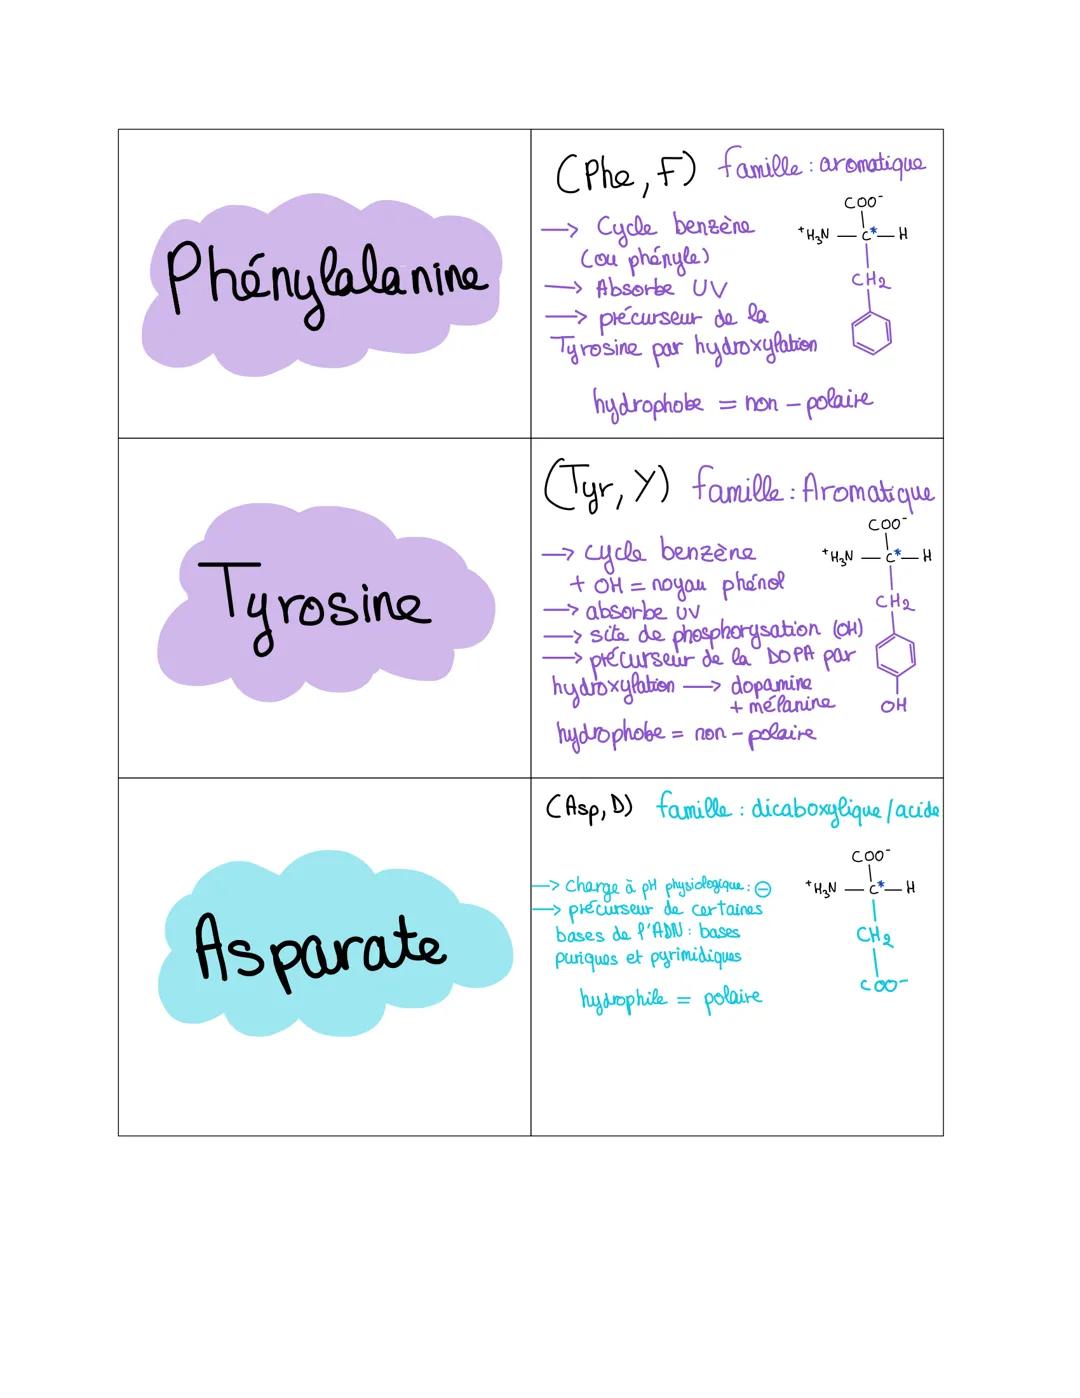 Phénylalanine
(Phe, F) famille : aromatique
→ Cycle benzène
(ou phényle)
→ Absorbe UV
→ précurseur de la
Tyrosine par hydroxylation
hydrophobe = non-polaire
COO⁻
⁺H₃N — C* — H
CH₂
Tyrosine
(Tyr, Y) famille : Aromatique
→ cycle benzène
+ OH = noyau phénol
→ absorbe UV
→ site de phosphorysation (OH)
→ précurseur de la DOPA par
hydroxylation → dopamine
+ mélanine
hydrophobe = non-polaire
COO⁻
⁺H₃N — C* — H
CH₂
OH
Asparate
(Asp, D) famille : dicaboxylique/acide
→ Charge à pH physiologique : ⊖
→ précurseur de certaines
bases de l'ADN : bases
puriques et pyrimidiques
hydrophile = polaire
COO⁻
⁺H₃N — C* — H
CH₂
COO⁻